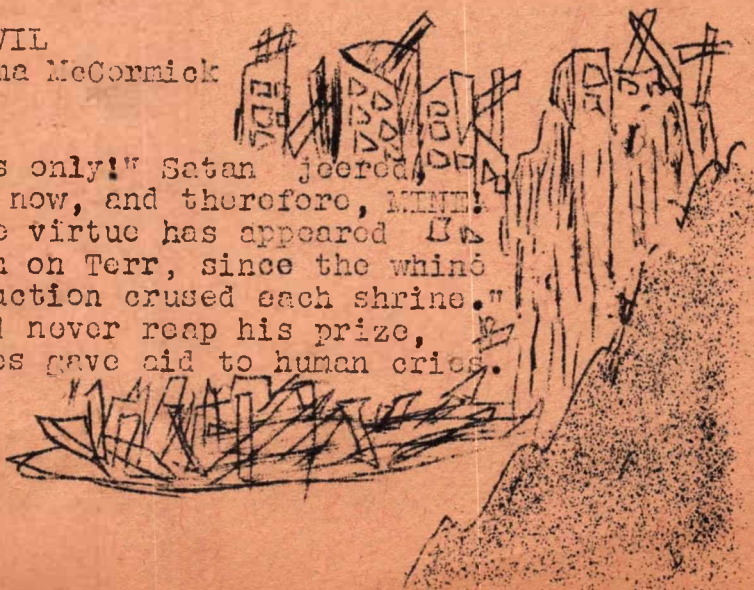 VIL
na McCormick
s only!" Satan jeered,
now, and therefore, MINE!
e virtue has appeared
n on Terr, since the whine
uction crused each shrine."
d never reap his prize,
es gave aid to human cries.